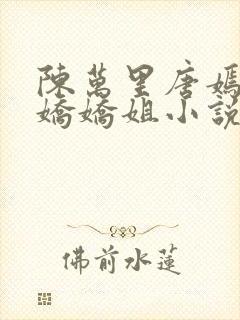 陳萬里唐嫣
嬌嬌姐小說
佛前水蓮